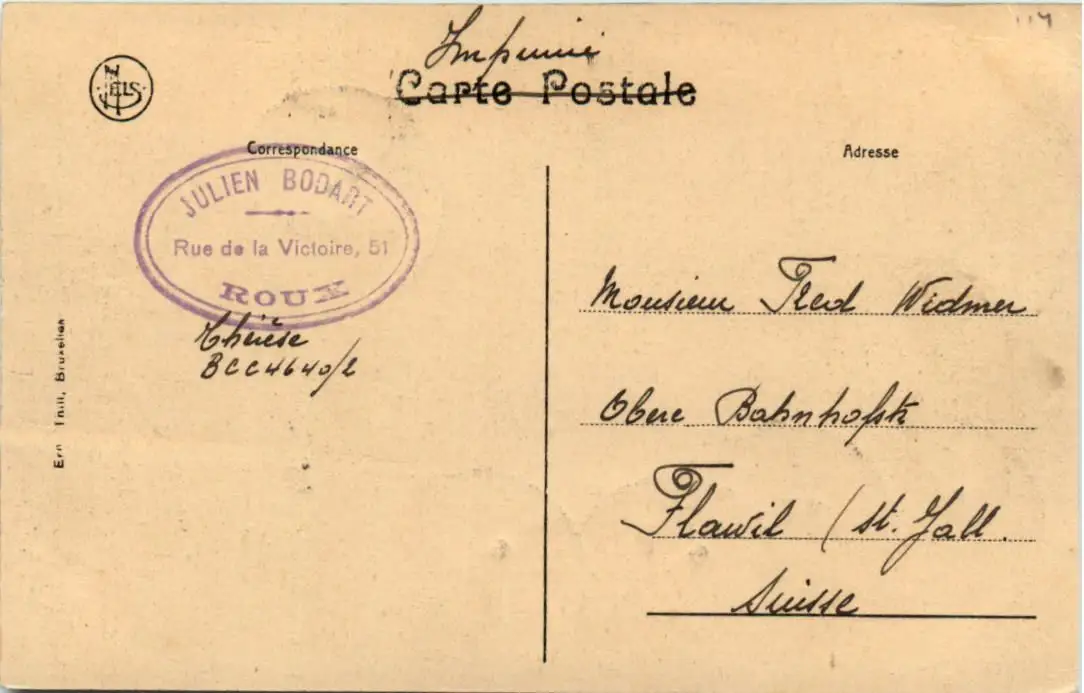 Imprimé
Carte Postale
NELS
Correspondance
Adresse
JULIEN BODART
Rue de la Victoire, 51
ROUX
Thérèse
BCC4640/2
Ern. Thill, Bruxelles
Monsieur Fred Widmer
Obere Bahnhofstr
Flawil (St. Gall.
Suisse